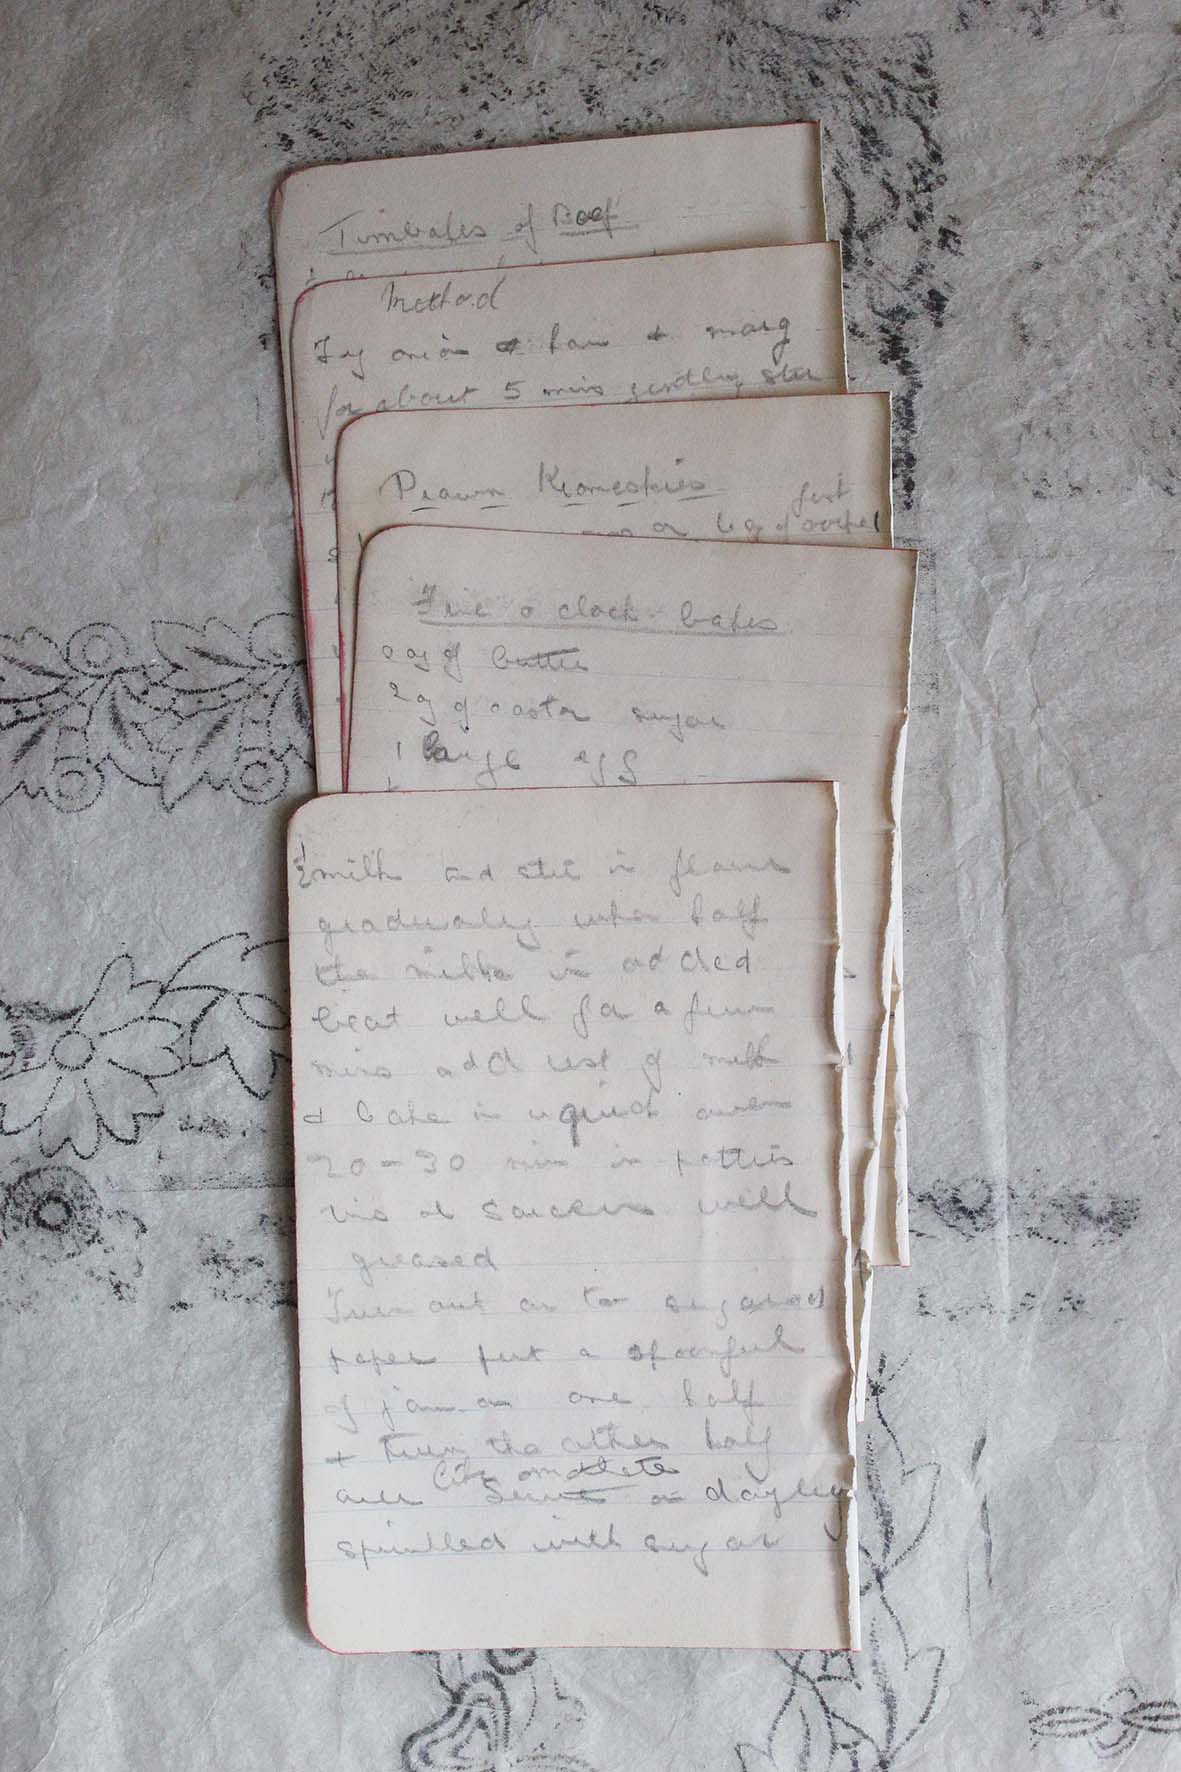 Timbales of Beef
Method
Fry onion & ham + marg
for about 5 mins gently, stir
Prawn Kromeskies
Five o clock cakes
2 oz of butter
2 oz of castor sugar
1 large egg
½ milk and stir in flour
gradually when half
the milk is added
beat well for a few
mins add rest of milk
& bake in quick oven
20 - 30 mins in patties
tins or saucers well
greased
Turn out on to sugared
paper put a spoonful
of jam on one half
+ turn the other half
over like omelete
Serve on
sprinkled with sugar